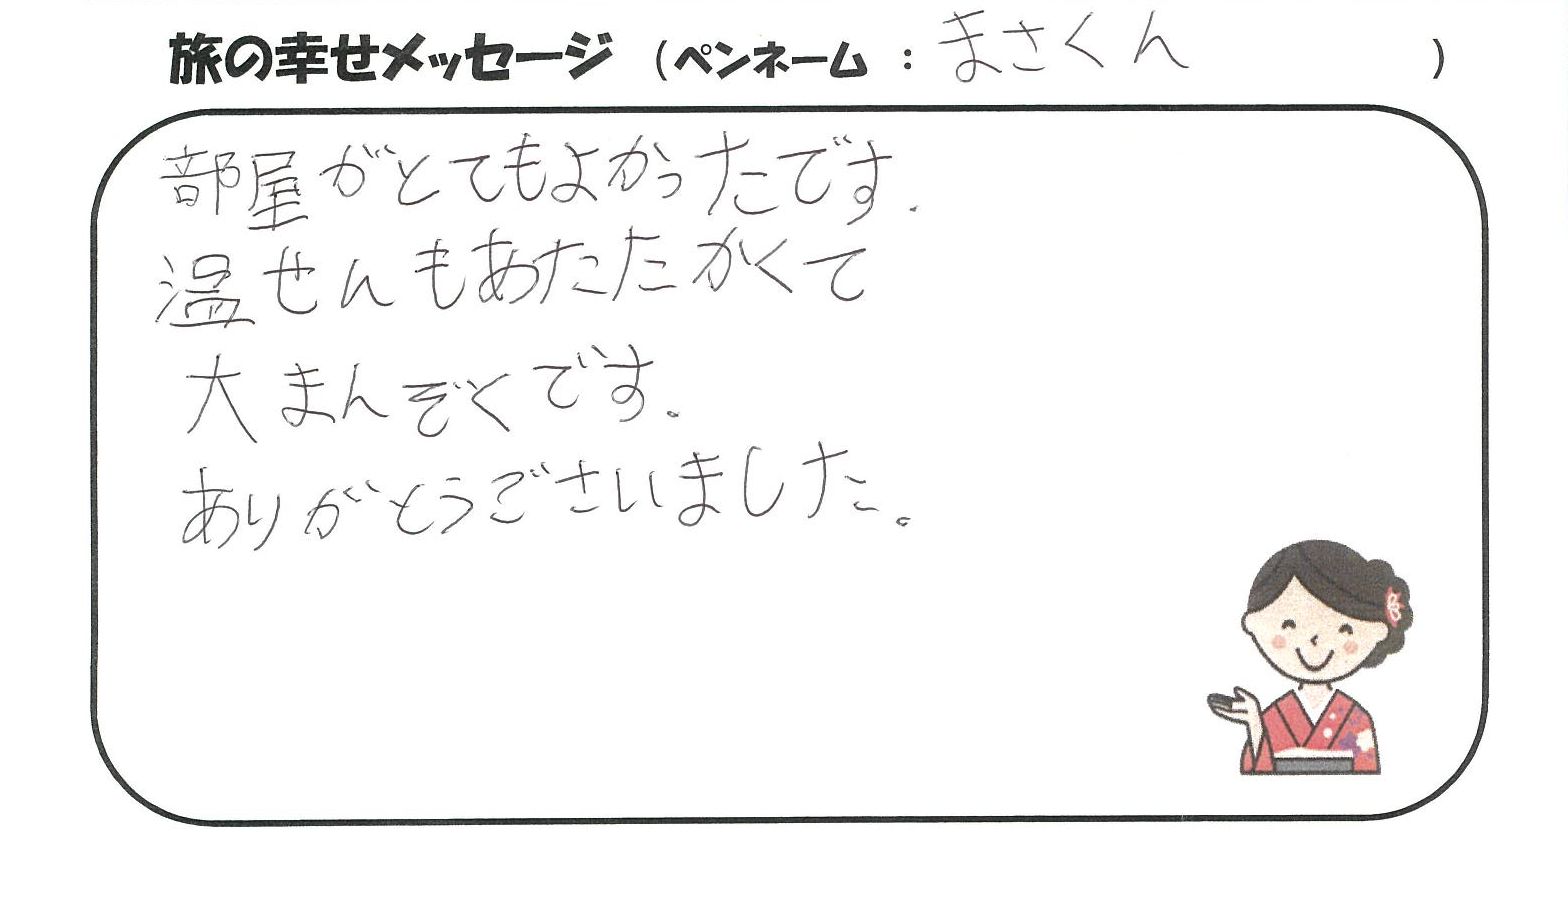 旅の幸せメッセージ （ペンネーム ： まさくん ）
部屋がとてもよかったです.
温せんもあたたかくて
大まんぞくです.
ありがとうございました。